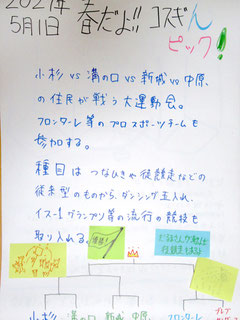 2021年
5月1日
春だよ!! コスギんピック!
小杉 vs 溝の口 vs 新城 vs 中原
の住民が戦う大運動会。
フロンターレ等のプロスポーツチームも
参加する。
種目は つなひきや徒競走などの
従来型のものから、ダンシング玉入れ、
イス-1グランプリ等の流行の競技を
取り入れる。
小杉 溝の口 新城 中原 フロンターレ